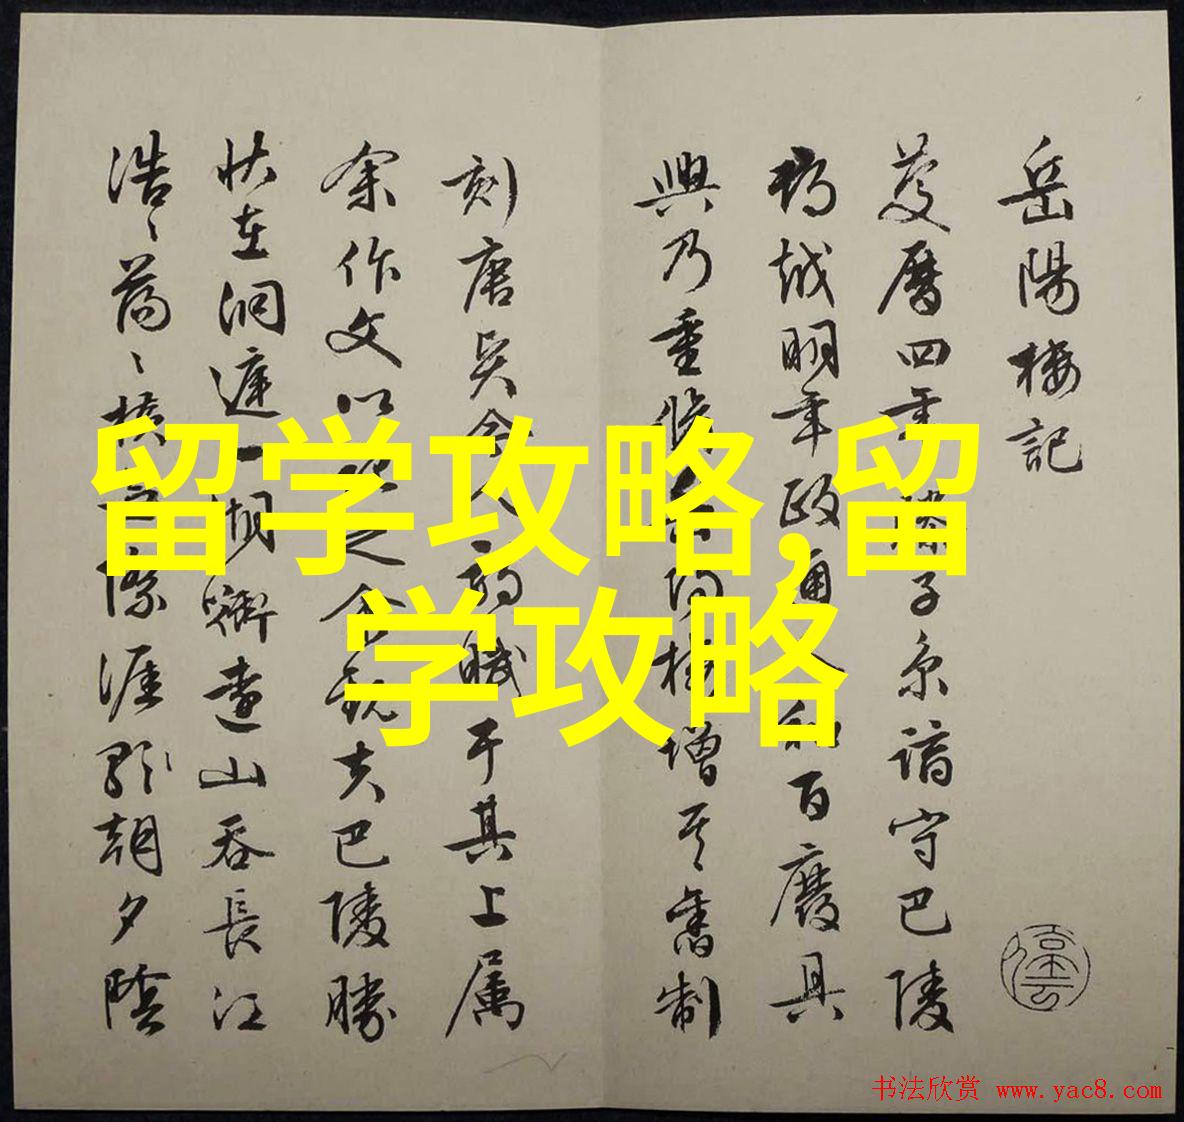 岳陽樓記
慶曆四年滕子京謫守巴陵
郡越明年政通人和百廢具
興乃重修岳陽樓增其舊制
刻唐賢今人詩賦于其上属
余作文以記之余觀夫巴陵勝
狀在洞庭一湖銜遠山吞長江
浩〻蕩〻橫無際涯朝夕陰
留学攻略,留
学攻略
书法欣赏 www.yac8.com